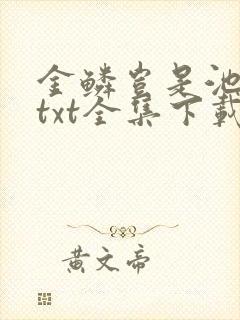 金鳞岂是池
txt全集下載
黄文帝